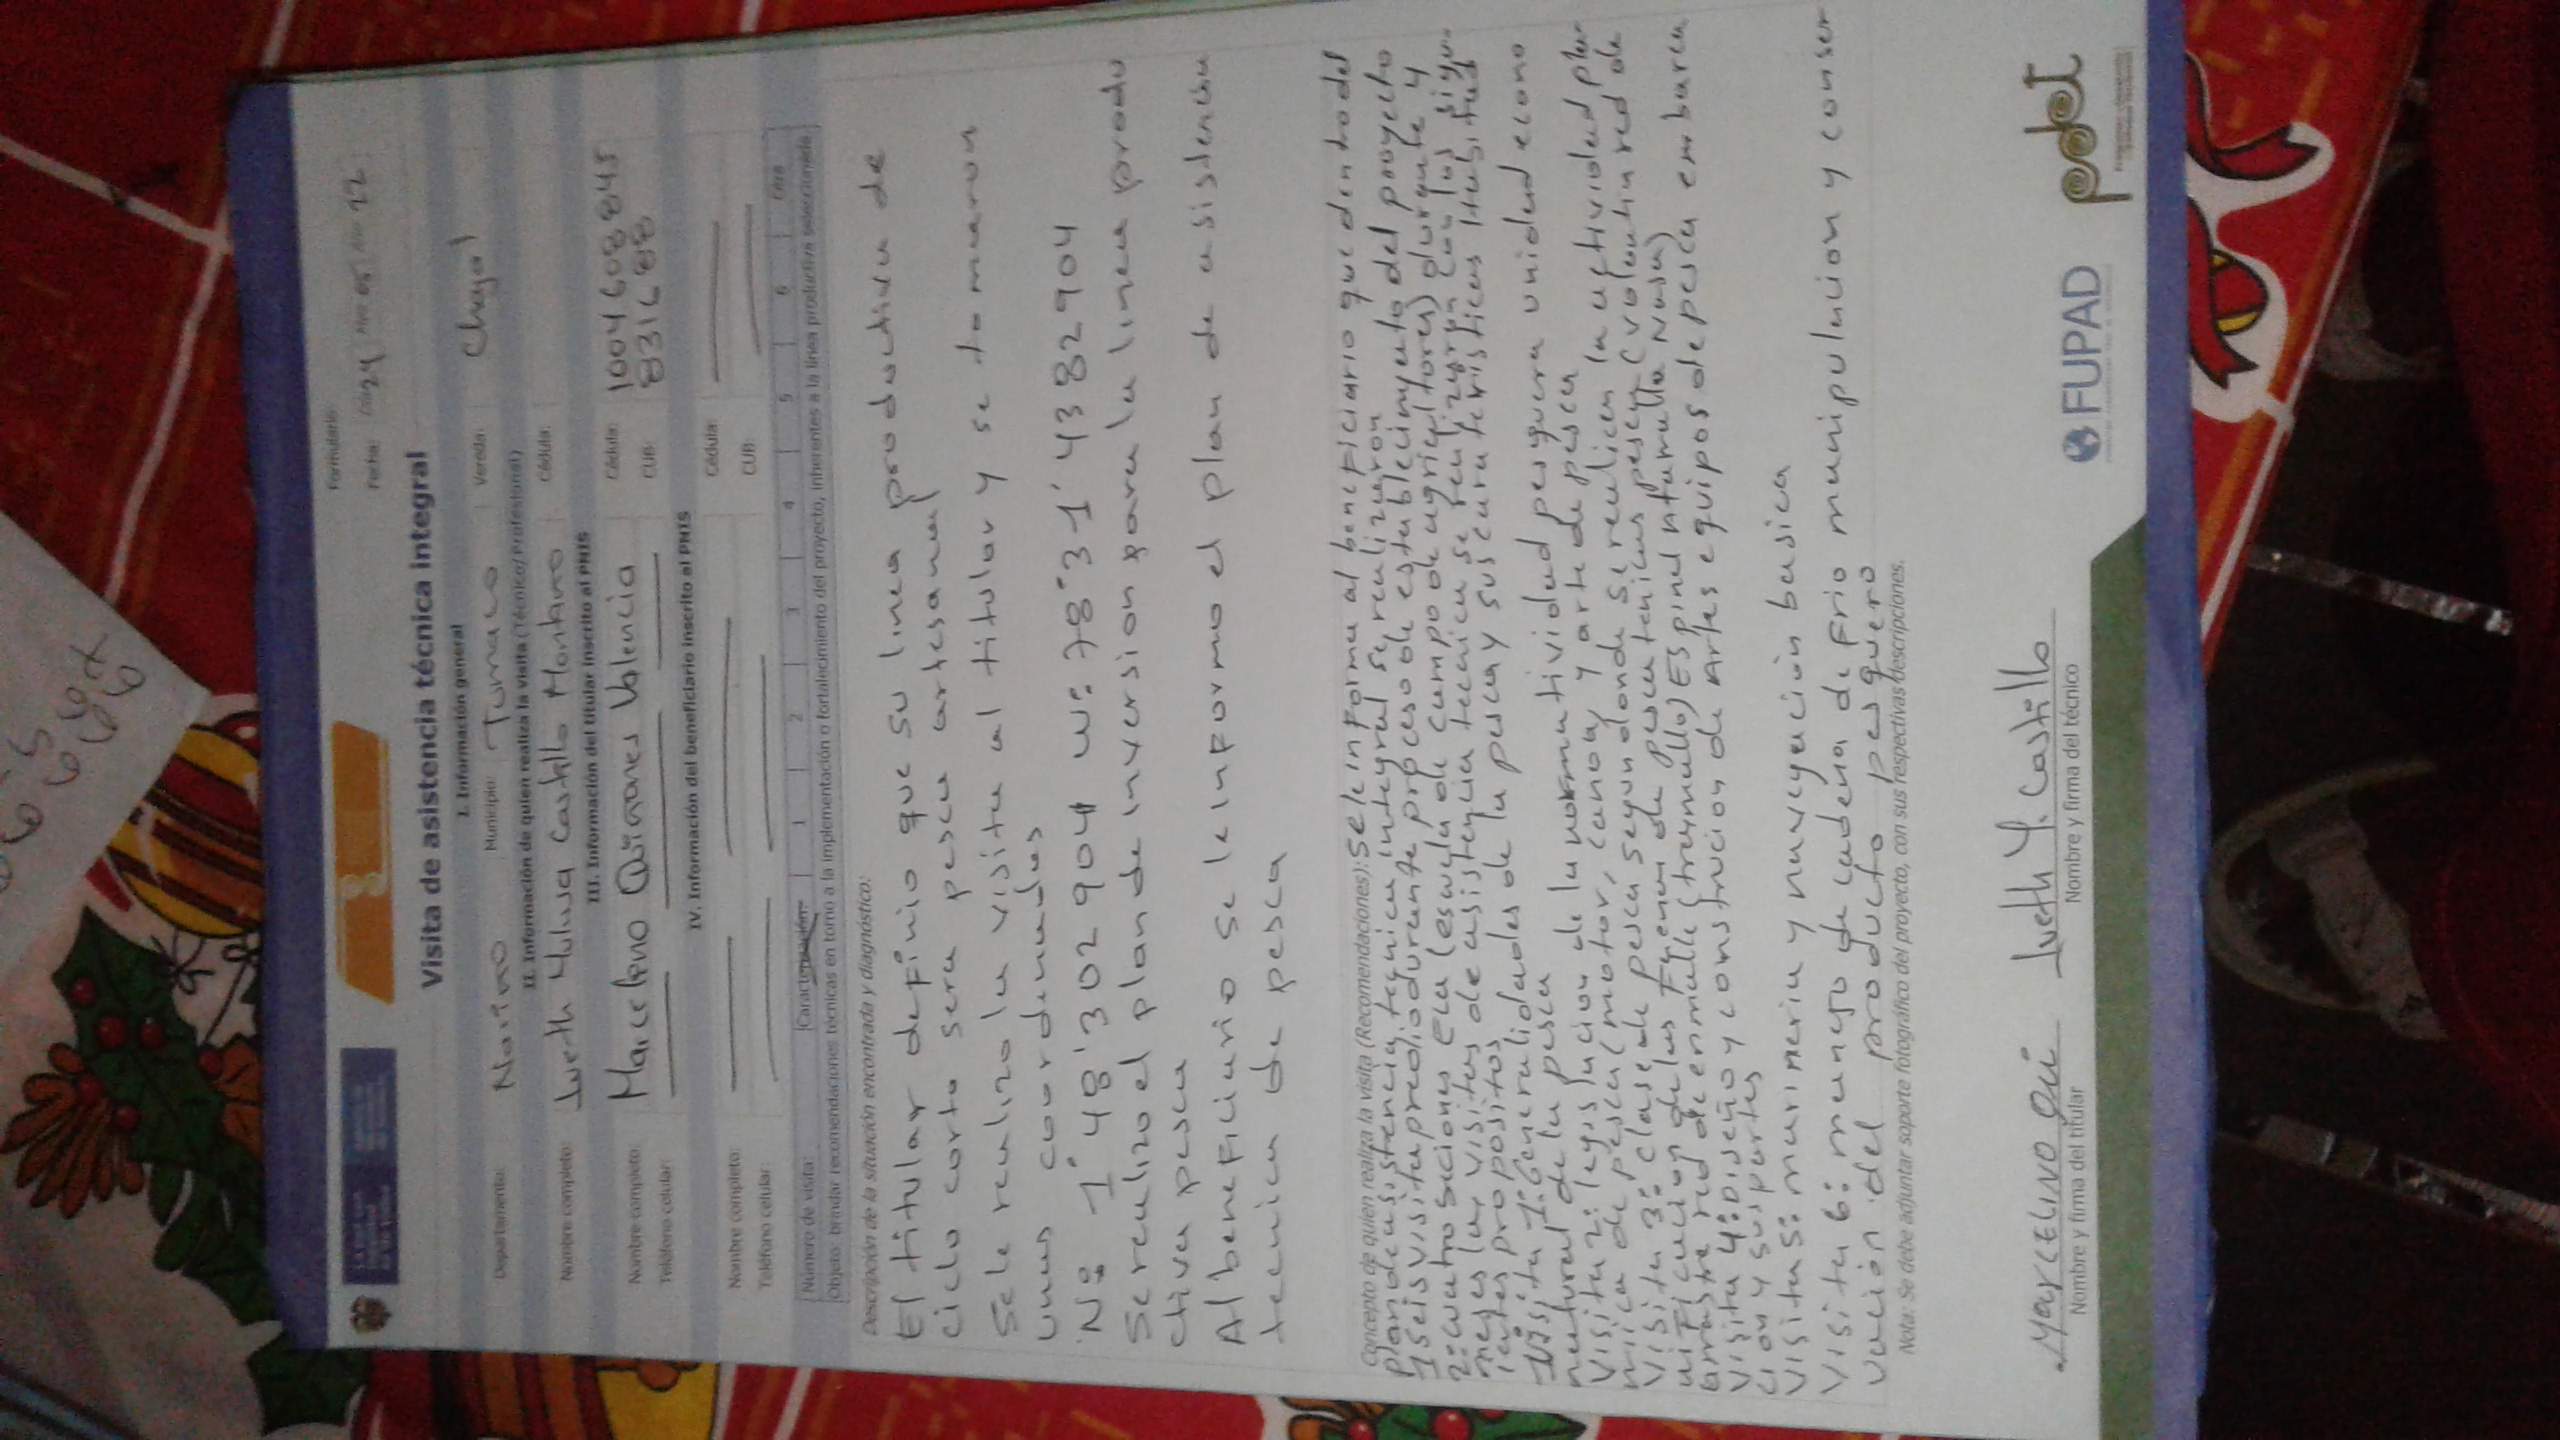 Formulario:
Fecha: Día 24 Mes 05 Año 22
Visita de asistencia técnica integral
I. Información general
Departamento: Nariño Municipio: Tumaco Vereda: Chajal
II. Información de quien realiza la visita (Técnico/Profesional)
Nombre completo: Iveth Yulusa Castillo Montaño Cédula:
III. Información del titular inscrito al PNIS
Nombre completo: Marcelino Quiñones Valencia Cédula: 1004608845
Teléfono celular: CUB:
IV. Información del beneficiario inscrito al PNIS
Nombre completo: Cédula:
Teléfono celular: CUB:
Número de visita: Caracterización 1 2 3 4 5 6 Otra
Objeto: brindar recomendaciones técnicas en torno a la implementación o fortalecimiento del proyecto, inherentes a la línea productiva seleccionada
Descripción de la situación encontrada y diagnóstico:
El titular definio que su linea productiva de
ciclo corto sera pesca artesanal
Se le realizo la visita al titular y se tomaron
unas coordenadas
N: 1° 48' 302904 W: 78° 31' 4382904
Se realizo el plan de inversion para la linea produ
ctiva pesca
Al beneficiario se le informo el plan de asistencia
tecnica de pesca
Concepto de quien realiza la visita (Recomendaciones): Se le informa al beneficiario que dentro del
plan de asistencia tecnica integral se realizaron
1 seis visita predio durante proceso de establecimiento del proyecto
2: cuatro seciones Eca (escuela de campo de agricultores) durante 4
meses las visitas de asistencia tecnica se realizaran con los sigu-
ientes propositos
Visita 1: Generalidades de la pesca y sus caracteristicas Habitud
natural de la pesca
Visita 2: legislacion de la normatividad pesquera unidad econo
mica de pesca (motor, canoa y arte de pesca
Visita 3: clase de pesca segun donde se realicen la actividad plan
nificacion de las Faenas de pesca tecnicas pesca (volantin red de
arrastre red de enmalle (trasmallo) Espinel atarralla Nasa)
Visita 4: Diseño y construcion de Artes equipos de pesca embarca
cion y sus partes
Visita 5: marineria y navegacion basica
Visita 6: manejo de cadena de frio manipulacion y conser
vacion del producto pesquero
Nota: Se debe adjuntar soporte fotográfico del proyecto, con sus respectivas descripciones.
MARCELINO QUI Iveth Y. Castillo
Nombre y firma del titular Nombre y firma del técnico
FUPAD pdet